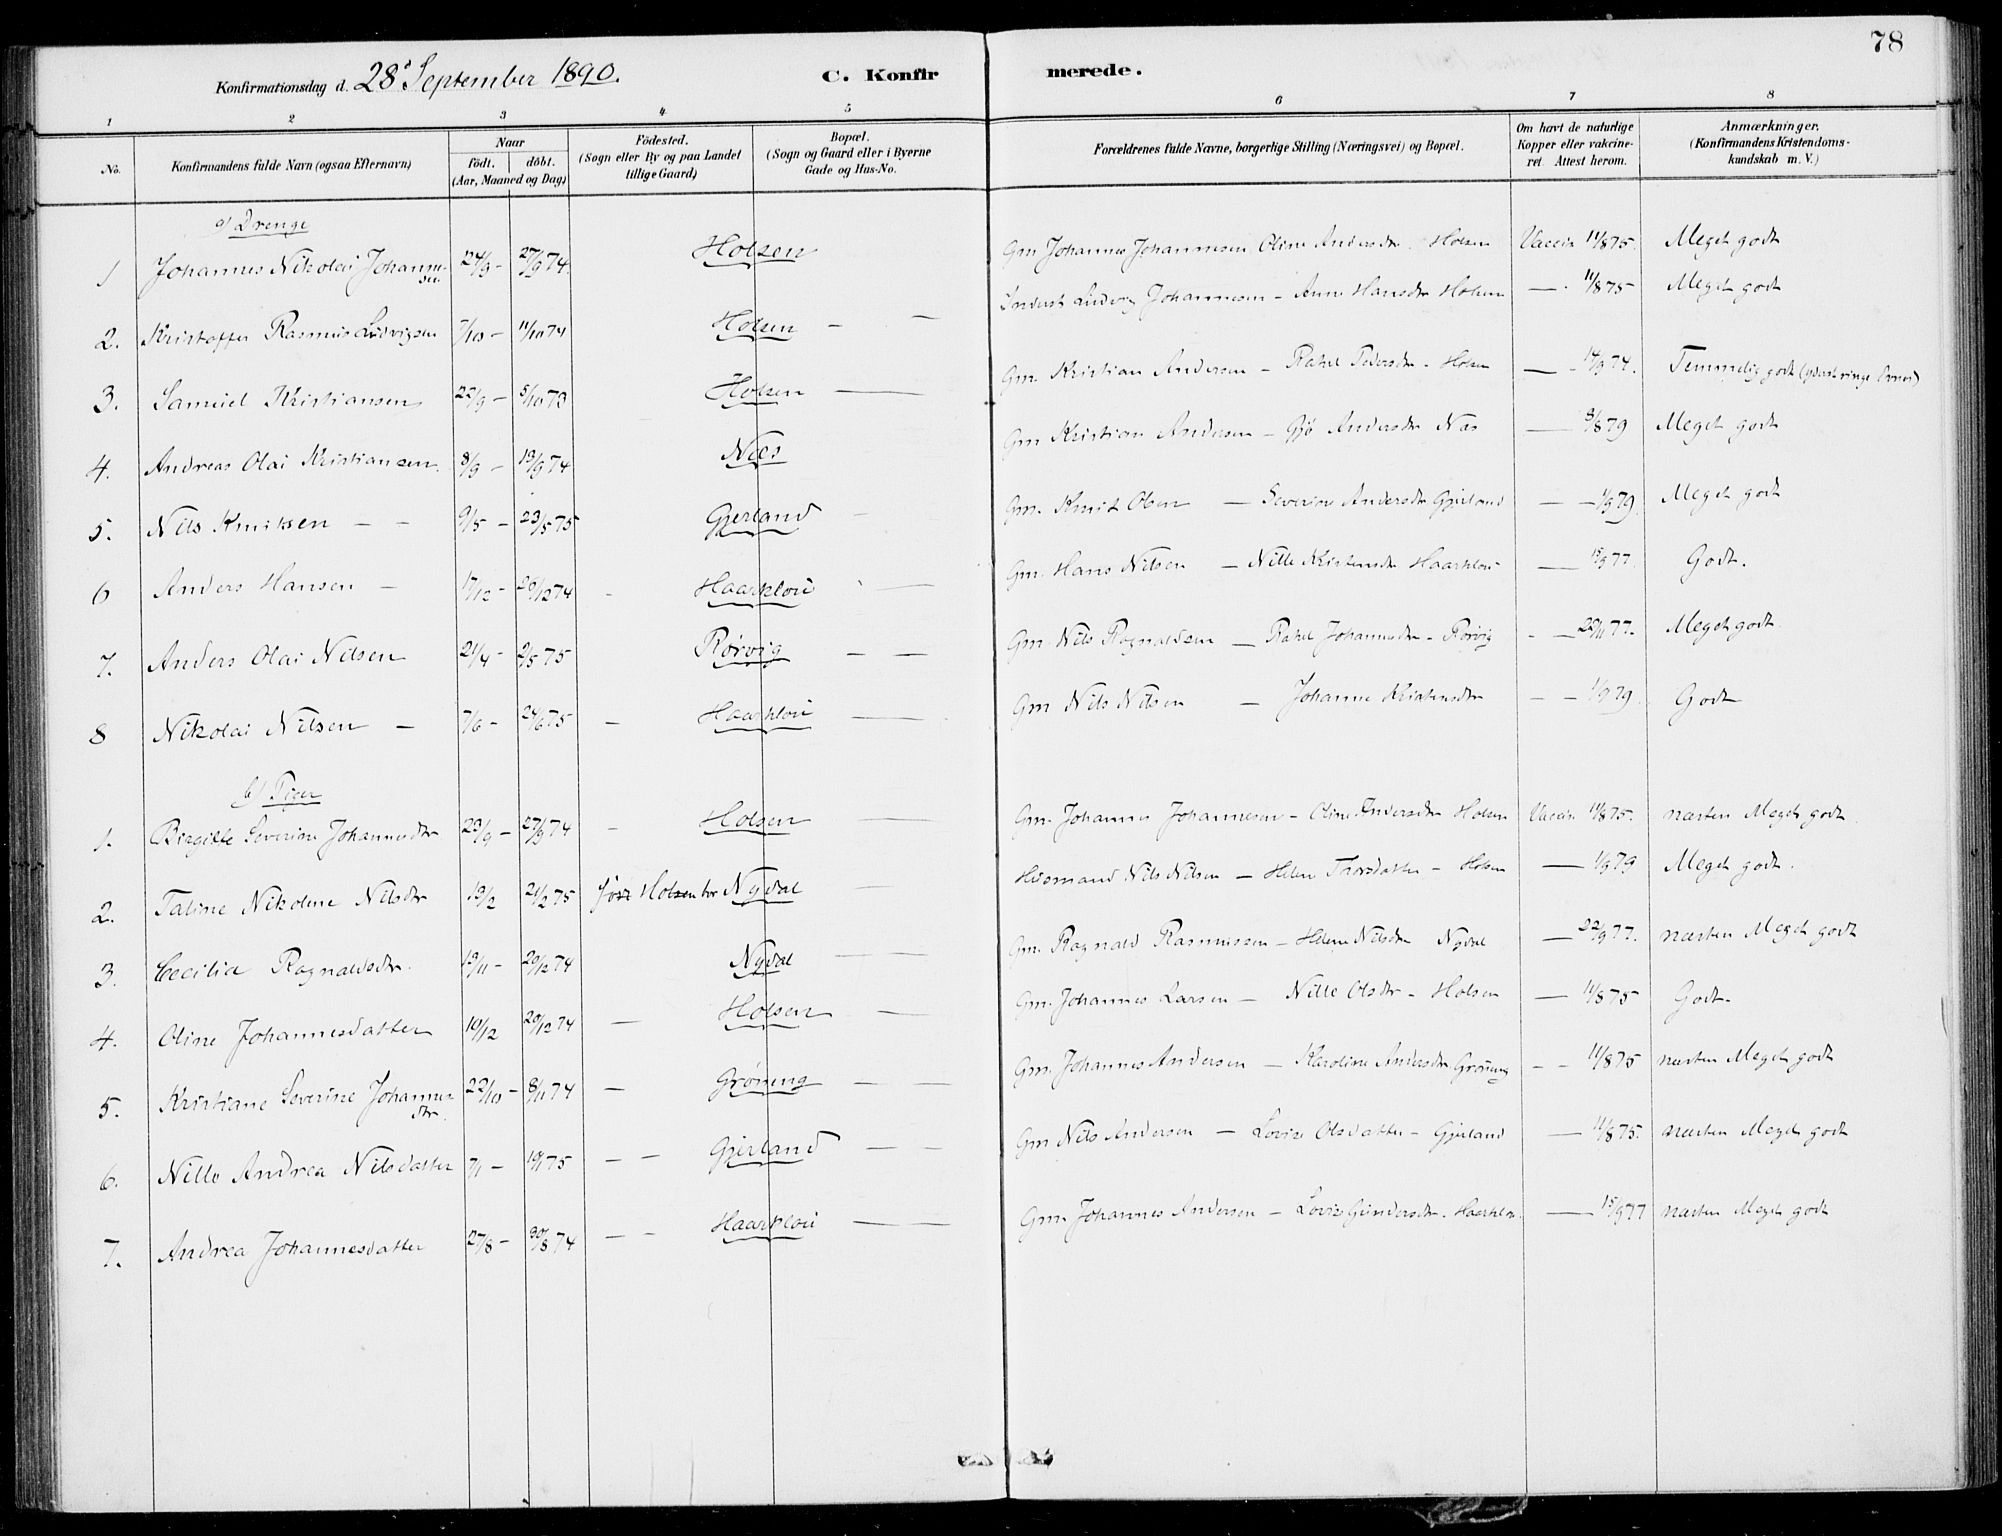 78
Konfirmationsdag d. 28de September 1890. C. Konfirmerede.
1 2 3 4 5 6 7 8
No. Konfirmandens fulde Navn (ogsaa Efternavn) Naar født. døbt. (Aar, Maaned og Dag) Fødested. (Sogn eller By og paa Landet tillige Gaard) Bopæl. (Sogn og Gaard eller i Byerne Gade og Hus-No. Forældrenes fulde Navne, borgerlige Stilling (Næringsvei) og Bopæl. Om havt de naturlige Kopper eller vakcineret. Attest herom. Anmærkninger. (Konfirmandens Kristendomskundskab m. V.)
a/ Drenge
1 Johannes Nikolai Johannessen 24/9 - 27/9 74. Holsen Gm Johannes Johannessen Oline Andersdtr. Holsen Vaccin 11/8 75. Meget godt
2. Kristoffer Rasmus Ludvigsen 7/10 - 11/10 74 Holsen - — Ludvig Johannessen - Anne Hansdtr Holsen — 11/8 75 Meget godt
3. Samuel Kristiansen 22/9 - 5/10 73 Holsen — Gm. Kristian Andersen - Rakel Pedersdtr - Holsen — 14/9 74. Temmelig godt
4. Andreas Olai Kristiansen. 8/9 - 13/9 74 Næs Gm Kristian Andersen - Gjø Andersdtr Næs — 8/8 79 Meget godt
5. Nils Knutsen - - 9/5 - 23/5 75 Gjerland - Gm. Knut Olsen — Severine Andersdtr Gjerland — 1/9 79. Meget godt
6 Anders Hansen - 17/12 - 20/12 74 - Haarklou — Gm. Hans Nilsen — Nille Kristensdtr Haarklou — 15/9 77. Godt.
7. Anders Olai Nilsen 21/4 - 2/5 75 Rørvig — — Gm. Nils Ragnaldsen — Rakel Johannesdtr - Rørvig - — 22/11 77. Meget godt.
8 Nikolai Nilsen - 7/6 - 24/6 75 — Haarklou — Gm Nils Nilsen — Johanne Kristensdtr - — 1/9 79. Godt
b/ Piger
1. Birgitte Severine Johannesdtr 23/9 - 27/9 74 - Holsen — Gm. Johannes Johannessen - Oline Andersdtr Holsen Vaccin. 11/8 75. næsten Meget godt.
2. Taline Nikoline Nilsdtr 13/2 21/2 75 født Holsen bor Nydal — Husmand Nils Nilsen — Helene Thorsdatter - Holsen — 1/9 79 Meget godt.
3. Cecilia Ragnaldsdtr. 13/11 - 20/12 74 Nydal — Gm. Ragnald Rasmussen - Helene Nilsdtr Nydal — 22/9 77. næsten Meget godt
4. Oline Johannesdatter 10/12 20/12 74 — Holsen — Gm. Johannes Larsen - Nille Olsdtr - Holsen — 11/8 75 Godt.
5. Kristiane Severine Johannesdtr. 22/10 - 8/11 74 — Grøneng — — Gm. Johannes Andersen — Karoline Andersdtr Grøneng - - 11/8 75 næsten Meget godt
6. Nille Andrea Nilsdatter 7/1 - 10/1 75 — — Gjerland — — Gm Nils Andersen — Lovise Olsdatter - Gjerland — 11/8 75. næsten Meget godt
7. Andrea Johannesdatter 27/8 - 30/8 74 — — Haarklou — — Gm. Johannes Andersen - Lovise Gundersdtr. Haarklou — 15/9 77 næsten Meget godt